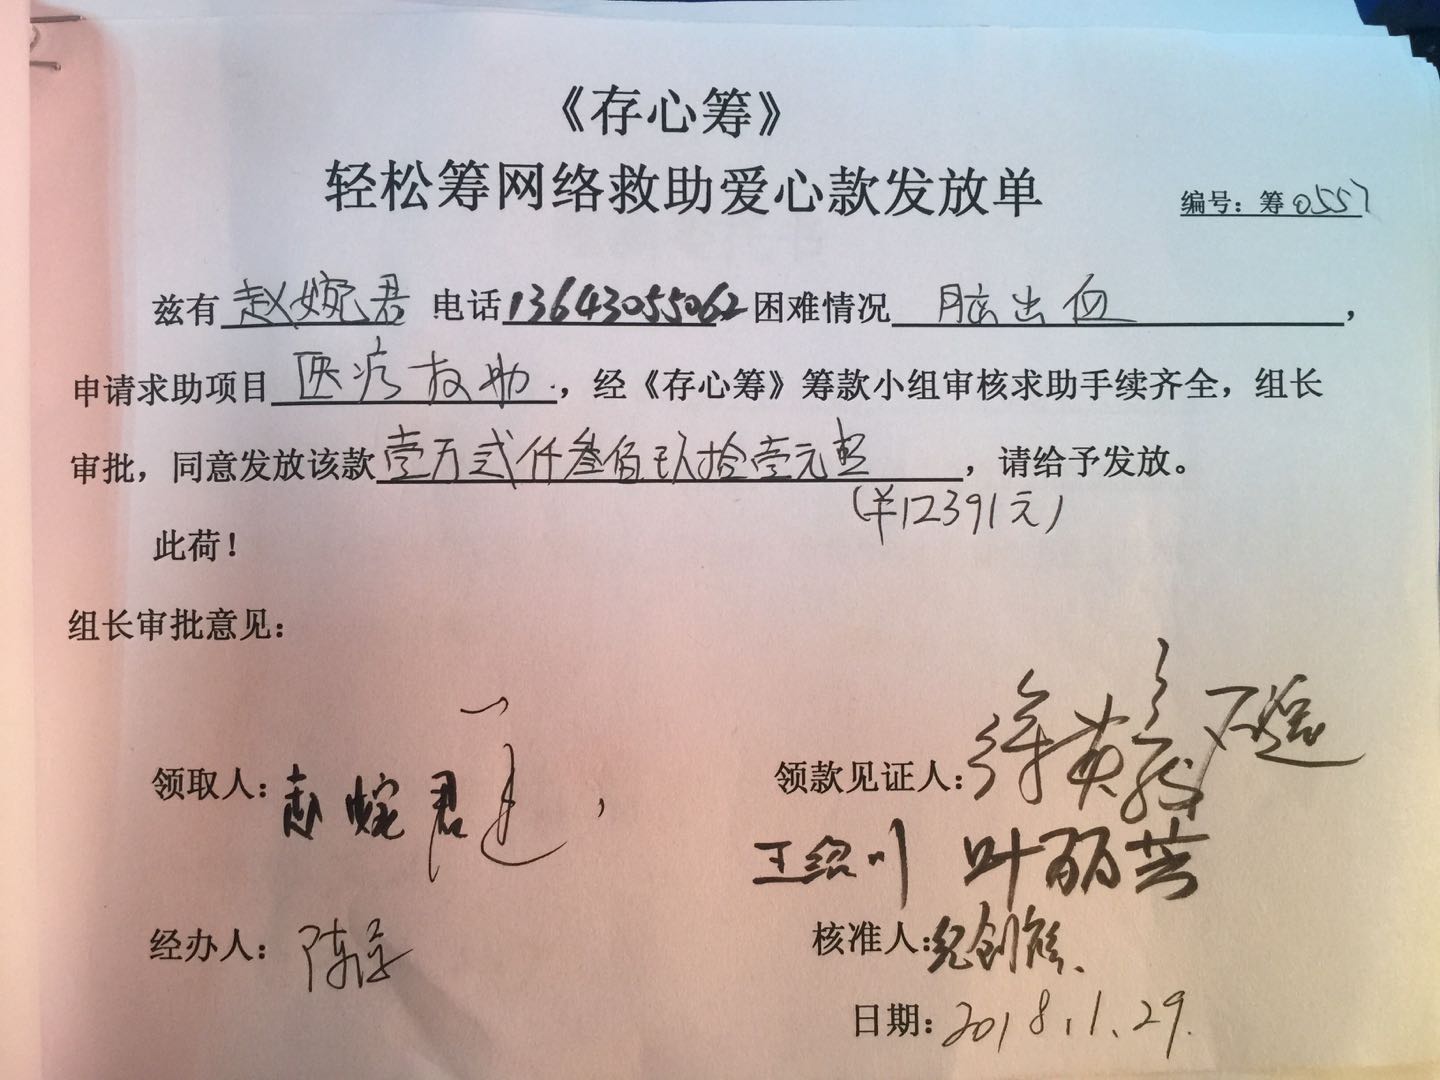 《存心筹》
轻松筹网络救助爱心款发放单
编号：筹0557
兹有赵婉君电话13643055062困难情况 脑出血，
申请求助项目 医疗救助.，经《存心筹》筹款小组审核求助手续齐全，组长
审批，同意发放该款壹万贰仟叁佰玖拾壹元整，请给予发放。
(¥12391元)
此荷！
组长审批意见：
领取人：赵婉君
领款见证人：徐英
王绍川 叶丽芸
经办人：陈
核准人：纪剑
日期：2018.1.29.